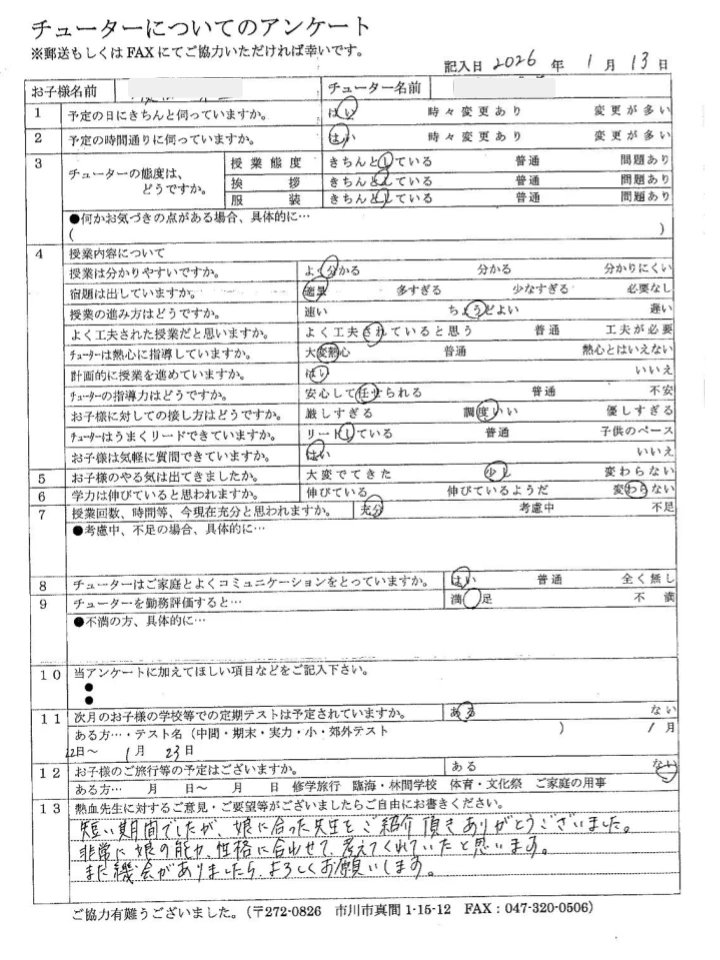 チューターについてのアンケート
※郵送もしくはFAXにてご協力いただければ幸いです。
記入日 2026 年 1 月 13 日
お子様名前 チューター名前
1 予定の日にきちんと伺っていますか。 はい 時々変更あり 変更が多い
2 予定の時間通りに伺っていますか。 はい 時々変更あり 変更が多い
3 チューターの態度は、どうですか。 授業態度 きちんとしている 普通 問題あり
挨拶 きちんとしている 普通 問題あり
服装 きちんとしている 普通 問題あり
●何かお気づきの点がある場合、具体的に…
( )
4 授業内容について
授業は分かりやすいですか。 よく分かる 分かる 分かりにくい
宿題は出していますか。 適量 多すぎる 少なすぎる 必要なし
授業の進み方はどうですか。 速い ちょうどよい 遅い
よく工夫された授業だと思いますか。 よく工夫されていると思う 普通 工夫が必要
チューターは熱心に指導していますか。 大変熱心 普通 熱心とはいえない
計画的に授業を進めていますか。 はい いいえ
チューターの指導力はどうですか。 安心して任せられる 普通 不安
お子様に対しての接し方はどうですか。 厳しすぎる 調度いい 優しすぎる
チューターはうまくリードできていますか。 リードしている 普通 子供のペース
お子様は気軽に質問できていますか。 はい いいえ
5 お子様のやる気は出てきましたか。 大変でてきた 少し 変わらない
6 学力は伸びていると思われますか。 伸びている 伸びているようだ 変わらない
7 授業回数、時間等、今現在充分と思われますか。 充分 考慮中 不足
●考慮中、不足の場合、具体的に…
8 チューターはご家庭とよくコミュニケーションをとっていますか。 はい 普通 全く無し
9 チューターを勤務評価すると… 満足 不満
●不満の方、具体的に…
10 当アンケートに加えてほしい項目などをご記入下さい。
●
●
11 次月のお子様の学校等での定期テストは予定されていますか。 ある ない
ある方…・テスト名(中間・期末・実力・小・郊外テスト ) 1月
22日～ 1月 23日
12 お子様のご旅行等の予定はございますか。 ある ない
ある方… 月 日～ 月 日 修学旅行 臨海・林間学校 体育・文化祭 ご家庭の用事
13 熱血先生に対するご意見・ご要望等がございましたらご自由にお書きください。
短い期間でしたが、娘に合った先生をご紹介頂きありがとうございました。
非常に娘の能力、性格に合わせて、考えてくれていたと思います。
また機会がありましたら、よろしくお願いします。
ご協力有難うございました。(〒272-0826 市川市真間1-15-12 FAX：047-320-0506)